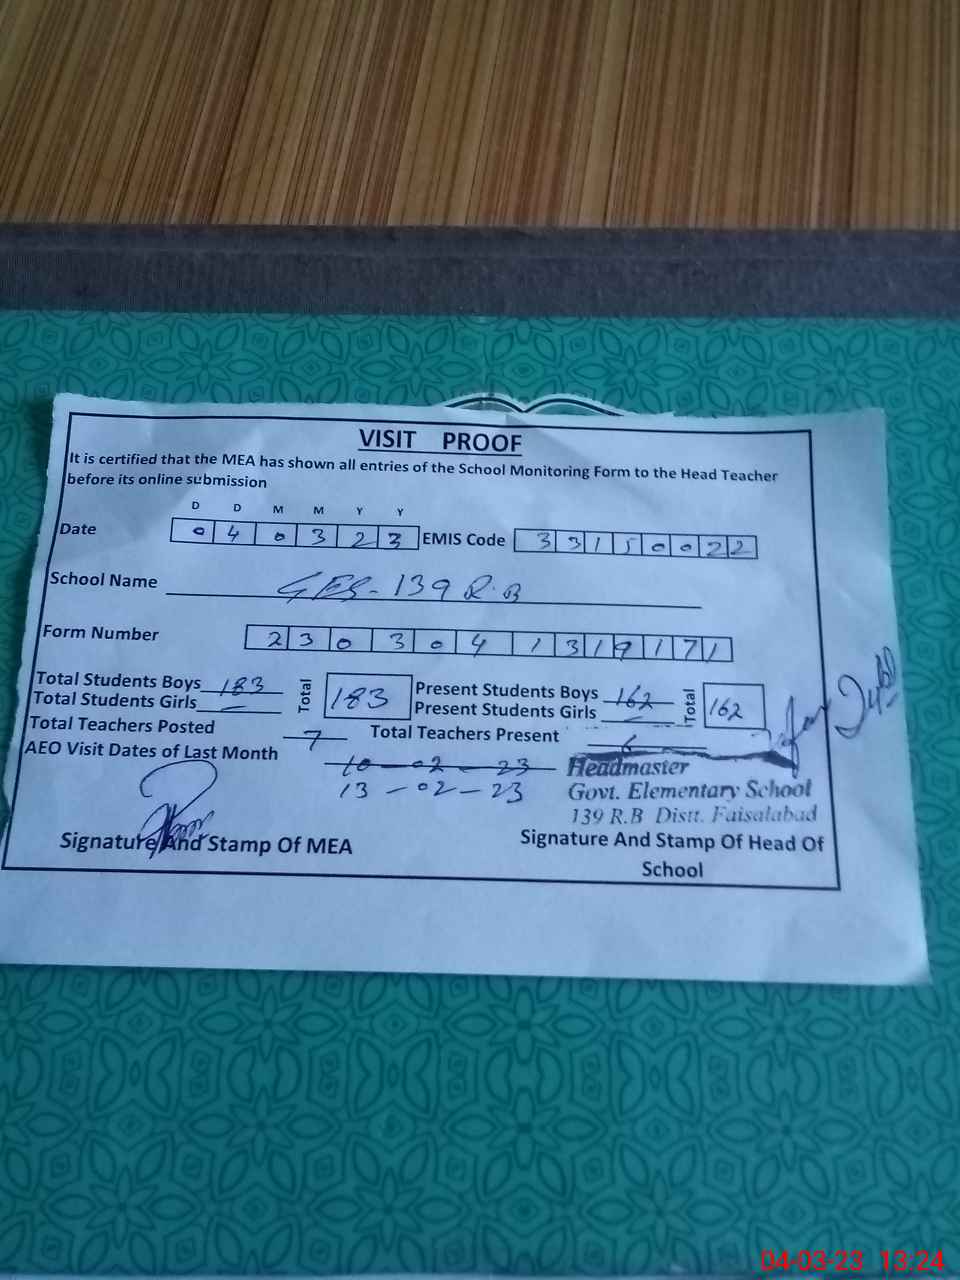 VISIT PROOF
It is certified that the MEA has shown all entries of the School Monitoring Form to the Head Teacher
before its online submission
D D M M Y Y
Date 0 4 0 3 2 3 EMIS Code 3 3 1 5 0 0 2 2
School Name GES-139 R.B
Form Number 2 3 0 3 0 4 1 3 1 9 1 7 1
Total Students Boys 183 Total 183 Present Students Boys 162 Total 162
Total Students Girls — Present Students Girls —
Total Teachers Posted 7 Total Teachers Present 6
AEO Visit Dates of Last Month 10-02-23
13-02-23
Headmaster
Govt. Elementary School
139 R.B Distt. Faisalabad
Signature And Stamp Of MEA
Signature And Stamp Of Head Of
School
04-03-23 13:24